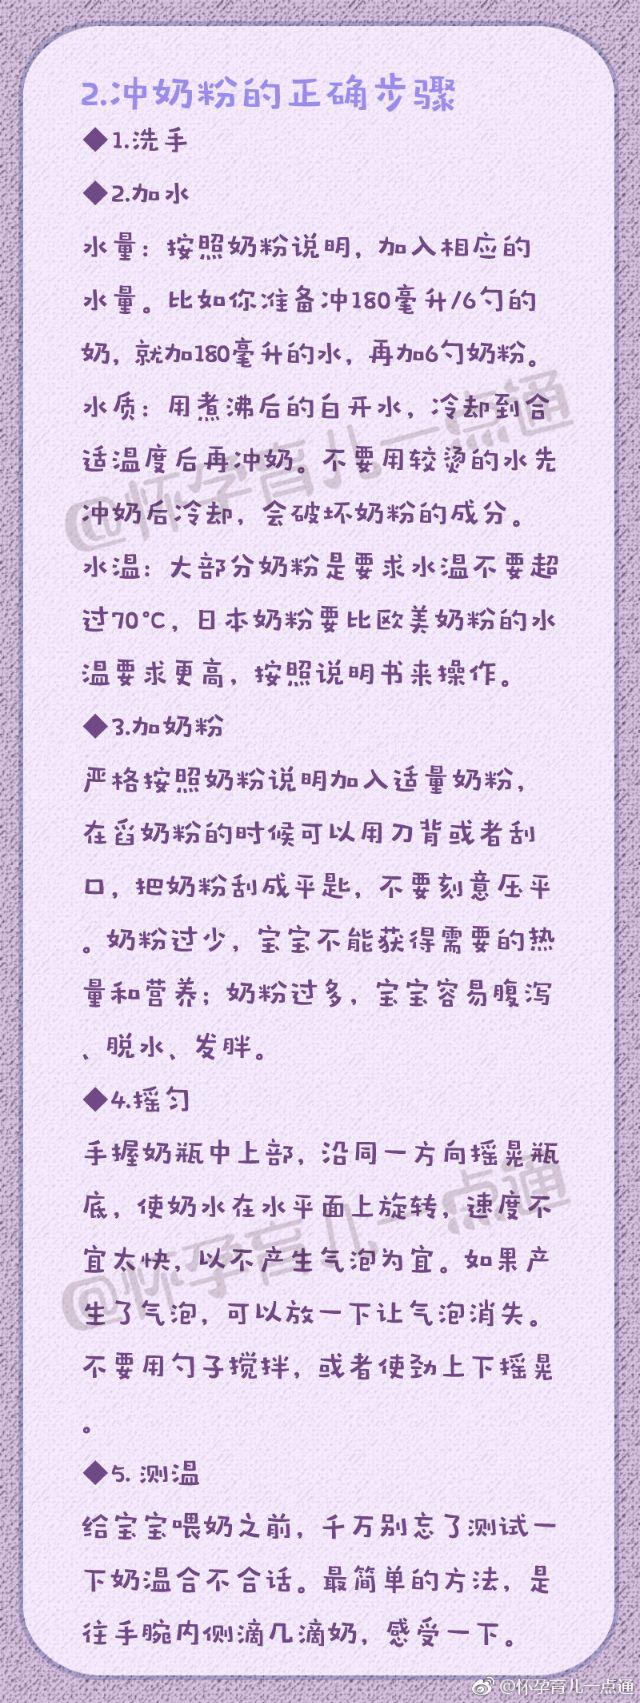 2.冲奶粉的正确步骤
◆1.洗手
◆2.加水
水量：按照奶粉说明，加入相应的
水量。比如你准备冲180毫升/6勺的
奶，就加180毫升的水，再加6勺奶粉。
水质：用煮沸后的白开水，冷却到合
适温度后再冲奶。不要用较烫的水先
冲奶后冷却，会破坏奶粉的成分。
@怀孕育儿一点通
水温：大部分奶粉是要求水温不要超
过70℃，日本奶粉要比欧美奶粉的水
温要求更高，按照说明书来操作。
◆3.加奶粉
严格按照奶粉说明加入适量奶粉，
在舀奶粉的时候可以用刀背或者刮
口，把奶粉刮成平匙，不要刻意压平
。奶粉过少，宝宝不能获得需要的热
量和营养；奶粉过多，宝宝容易腹泻
、脱水、发胖。
◆4.摇匀
手握奶瓶中上部，沿同一方向摇晃瓶
底，使奶水在水平面上旋转，速度不
宜太快，以不产生气泡为宜。如果产
生了气泡，可以放一下让气泡消失。
@怀孕育儿一点通
不要用勺子搅拌，或者使劲上下摇晃
。
◆5. 测温
给宝宝喂奶之前，千万别忘了测试一
下奶温合不合话。最简单的方法，是
往手腕内侧滴几滴奶，感受一下。
@怀孕育儿一点通